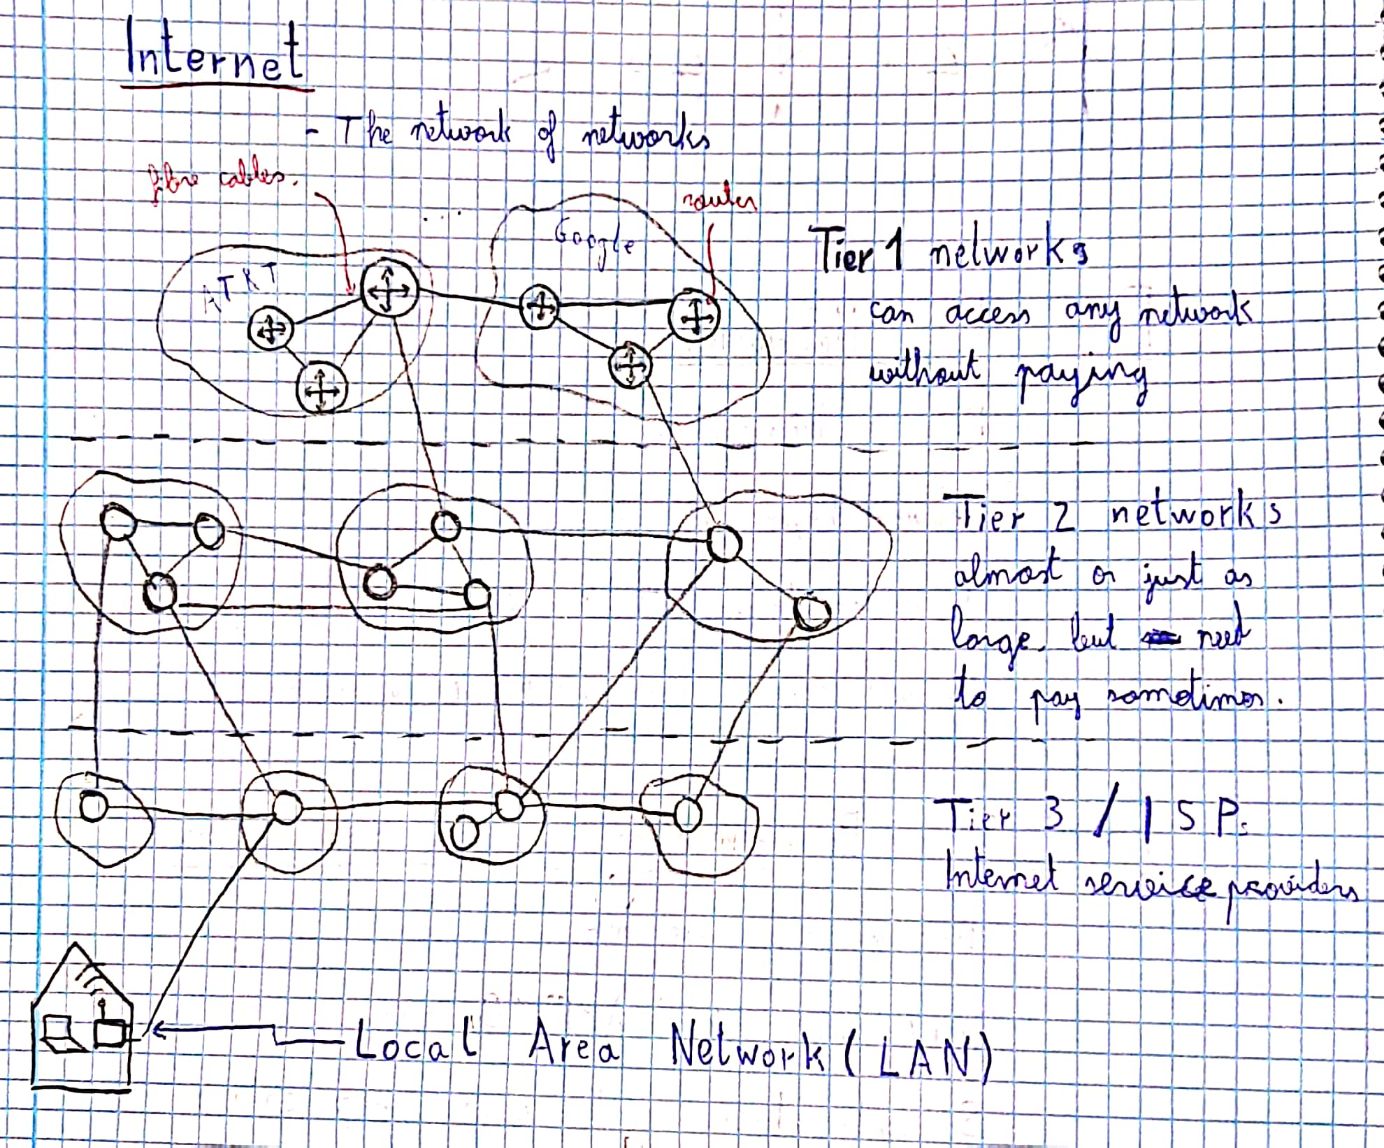 Internet
- The network of networks
fibre cables.
router
Google
AT&T
Tier 1 networks
can access any network
without paying
Tier 2 networks
almost or just as
large. but need
to pay sometimes.
Tier 3 / ISP:
Internet service providers
Local Area Network (LAN)